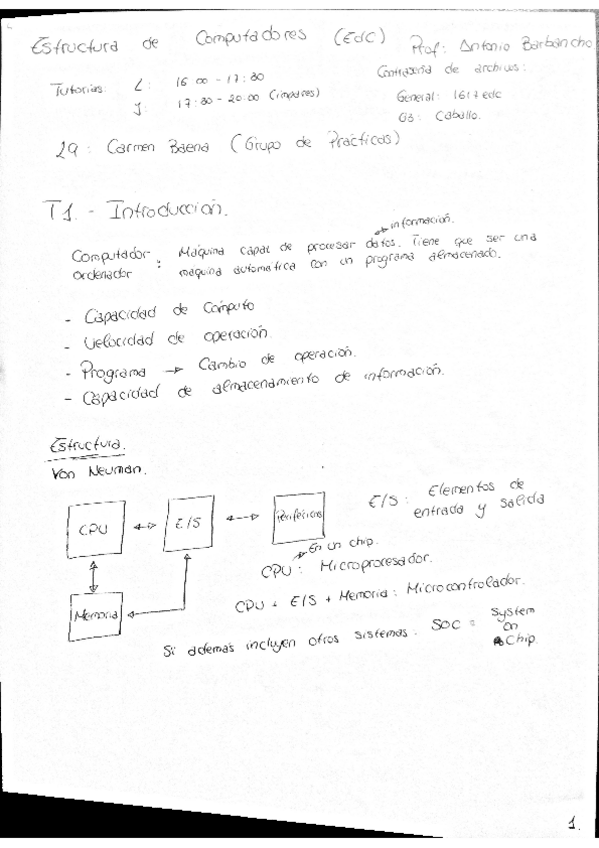 Estructura de Computadores (EdC) Prof: Antonio Barbancho
Tutorías: L: 16:00 - 17:30
J: 17:30 - 20:00 (impares)
Contraseña de archivos:
General: 1617edc
G3: Caballo.
L9: Carmen Baena (Grupo de Prácticas)
T1. - Introducción.
información.
Computador
ordenador : Máquina capaz de procesar datos. Tiene que ser una
máquina automática con un programa almacenado.
- Capacidad de Cómputo
- Velocidad de operación.
- Programa → Cambio de operación.
- Capacidad de almacenamiento de información.
Estructura.
Von Neuman.
CPU ↔ E/S ↔ Periféricos
Memoria
E/S: Elementos de
entrada y salida
En un chip.
CPU: Microprocesador.
CPU + E/S + Memoria: Microcontrolador.
Si además incluyen otros sistemas: SOC = System
on
Chip.
1.